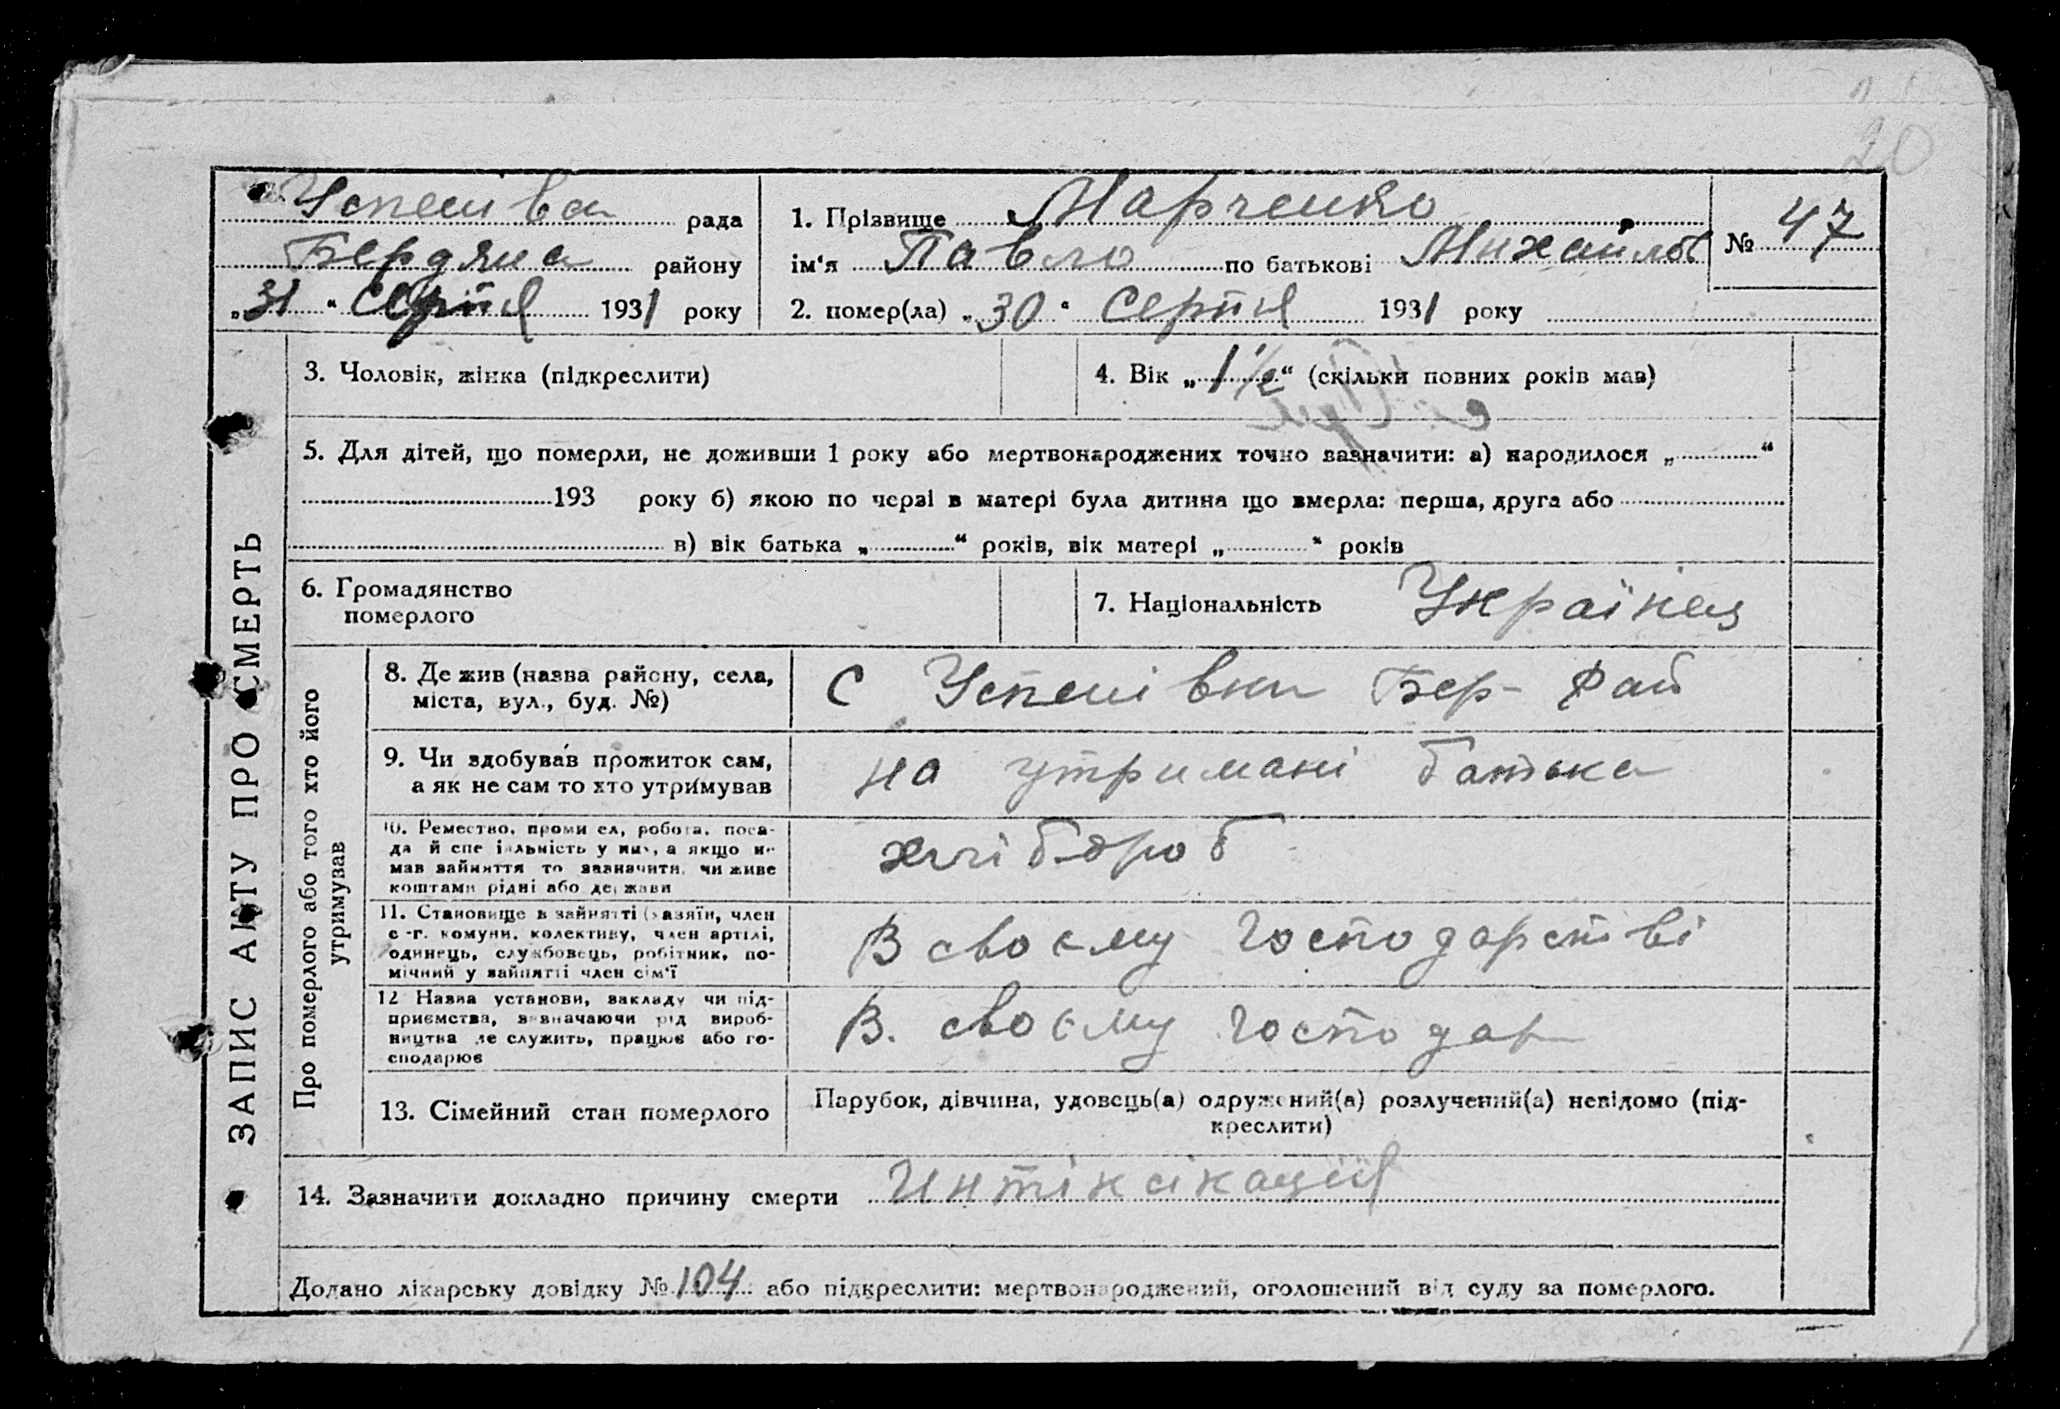 20
Успенівка рада
Бердянс району
„31“ Серпня 1931 року
1. Прізвище Марченко
ім'я Павло по батькові Михайлов
2. помер(ла) „30“ Серпня 1931 року
№ 47
ЗАПИС АКТУ ПРО СМЕРТЬ
3. Чоловік, жінка (підкреслити)
4. Вік „1 1/2“ (скільки повних років мав)
5. Для дітей, що померли, не доживши 1 року або мертвонароджених точно зазначити: а) народилося „ “
193 року б) якою по черзі в матері була дитина що вмерла: перша, друга або
в) вік батька „ “ років, вік матері „ “ років
6. Громадянство
померлого
7. Національність Українец
Про померлого або того хто його
утримував
8. Де жив (назва району, села,
міста, вул., буд. №)
С Успенівки Бер- Рай
9. Чи здобував прожиток сам,
а як не сам то хто утримував
на утримані батька
10. Ремество, проми ел, робота, поса-
да й спе іяльність у них, а якщо не
мав зайняття то зазначити, чи живе
коштами рідні або держави
хлібороб
11. Становище в зайнятті (хазяїн, член
с-г. комуни, колективу, член артілі,
одинець, службовець, робітник, по-
мічний у зайнятті член сім'ї
В своєму господарстві
12 Назва установи, закладу чи під-
приємства, зазначаючи рід вироб-
ництва де служить, працює або го-
сподарює
В. своєму господар
13. Сімейний стан померлого
Парубок, дівчина, удовець(а) одружений(а) розлучений(а) невідомо (під-
креслити)
14. Зазначити докладно причину смерти Интіксікація
Додано лікарську довідку № 104 або підкреслити: мертвонароджений, оголошений від суду за померлого.